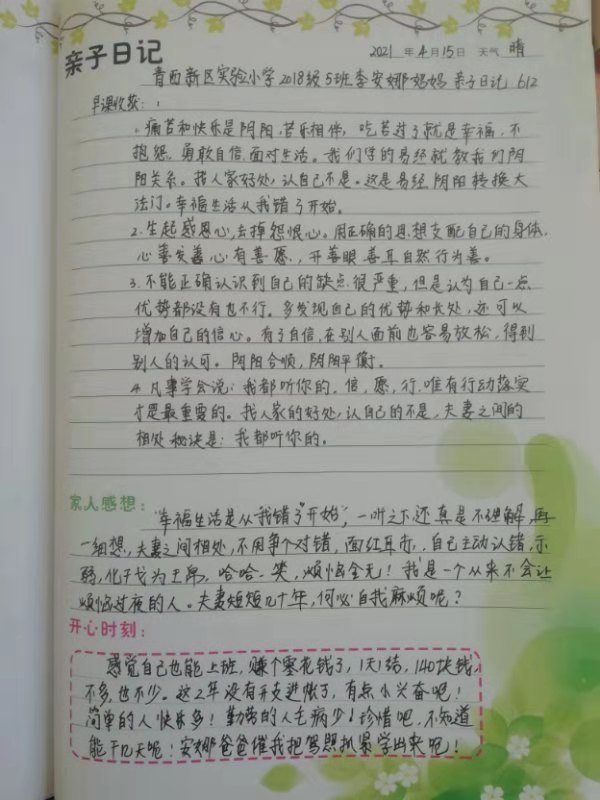 亲子日记
2021 年 4 月 15 日 天气 晴
青西新区实验小学2018级5班李安娜妈妈 亲子日记 612
早课收获：
1.痛苦和快乐是阴阳，苦乐相伴，吃苦过了就是幸福，不
抱怨，勇敢自信，面对生活。我们学的易经就教我们阴
阳关系。找人家好处，认自己不是。这是易经阴阳转换大
法门。幸福生活从我错了开始。
2.生起感恩心，去掉怨恨心。用正确的思想支配自己的身体，
心善发善心有善愿，开善眼善耳自然行为善。
3.不能正确认识到自己的缺点很严重，但是认为自己一点
优势都没有也不行。多发现自己的优势和长处，还可以
增加自己的信心。有了自信，在别人面前也容易放松，得到
别人的认可。阴阳合顺，阴阳平衡。
4.凡事学会说：我都听你的。信，愿，行，唯有行动落实
才是最重要的。找人家的好处，认自己的不是，夫妻之间的
相处秘诀是：我都听你的。
家人感想：
"幸福生活是从'我错了'开始"，一听之下还真是不理解，再
一细想，夫妻之间相处，不用争个对错，面红耳赤，自己主动认错，示
弱，化干戈为玉帛。哈哈一笑，烦恼全无！我是一个从来不会让
烦恼过夜的人。夫妻短短几十年，何必自我麻烦呢？
开心时刻：
感觉自己也能上班，赚个零花钱了，1天1结，140块钱，
不多，也不少。这2年没有开支进账了，有点小兴奋吧！
简单的人快乐多！勤劳的人毛病少！珍惜吧，不知道
能干几天呢！安娜爸爸催我把驾照抓紧学出来呢！